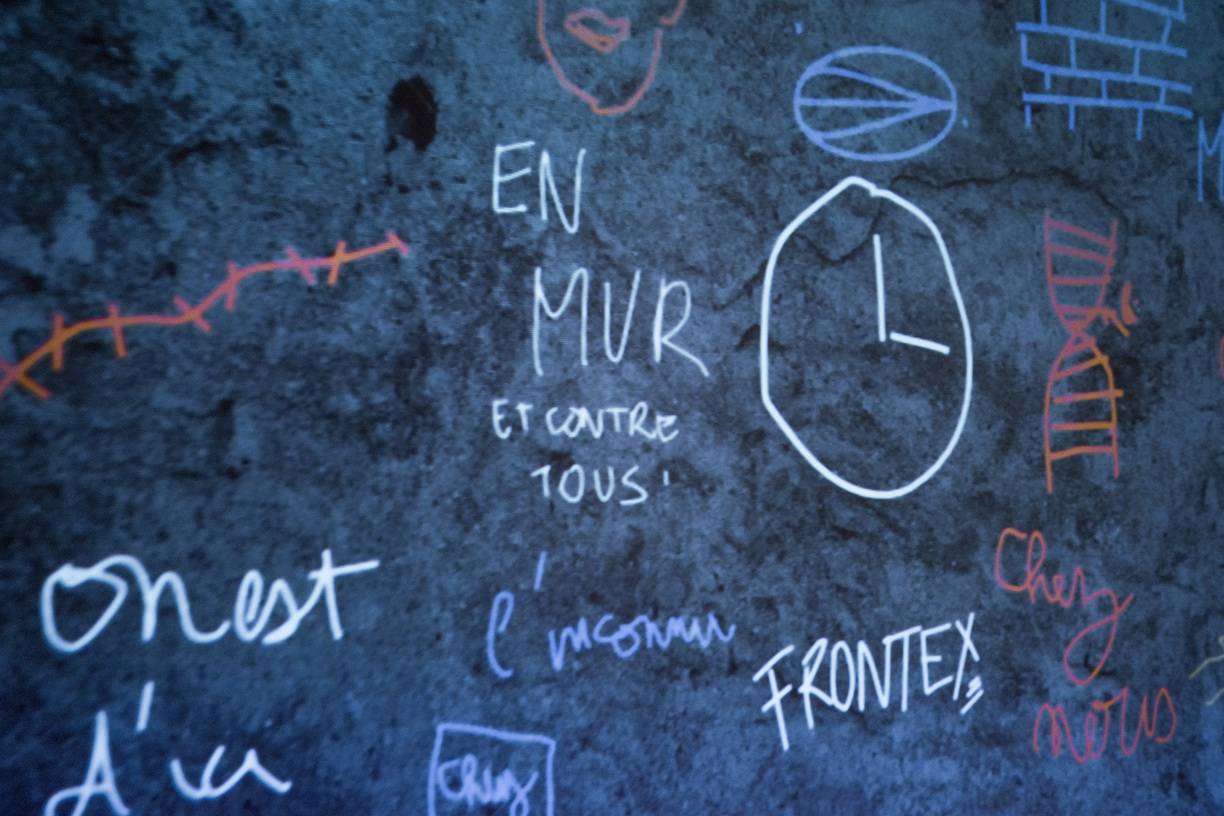 EN
MUR
ET CONTRE
TOUS!
on est
d'ici
l'inconnu
FRONTEX
Chez
nous
Chez
M